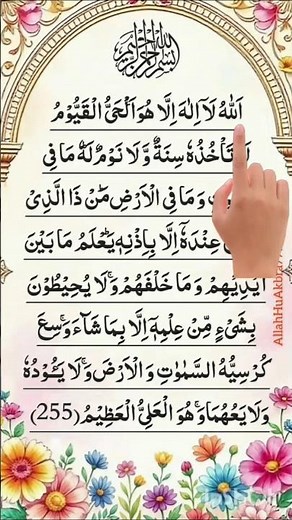 بسم الله الرحمن الرحيم
اَللّٰهُ لَاۤ اِلٰهَ اِلَّا هُوَ اَلْحَیُّ الْقَیُّوْمُ
تَاْخُذُهٗ سِنَةٌ وَّلَا نَوْمٌ لَهٗ مَا فِی
وَمَا فِی الْاَرْضِ مَنْ ذَا الَّذِیْ
عِنْدَهٗۤ اِلَّا بِاِذْنِهٖ یَعْلَمُ مَا بَیْنَ
اَیْدِیْهِمْ وَمَا خَلْفَهُمْ وَلَا یُحِیْطُوْنَ
بِشَیْءٍ مِّنْ عِلْمِهٖۤ اِلَّا بِمَا شَآءَ وَسِعَ
كُرْسِیُّهُ السَّمٰوٰتِ وَالْاَرْضَ وَلَا یَـُٔوْدُهٗ
حِفْظُهُمَا وَهُوَ الْعَلِیُّ الْعَظِیْمُ (255)
AllahHuAkbar